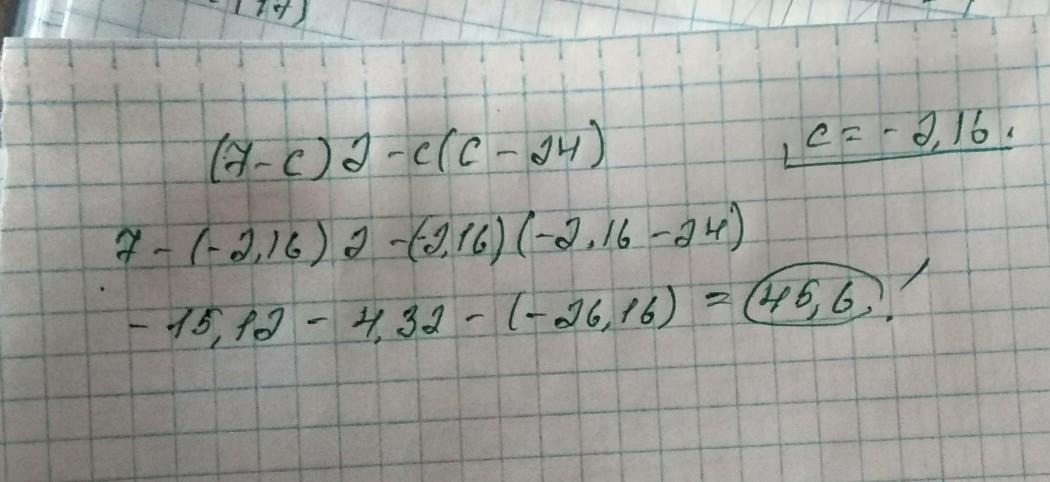 (7-c)2-c(c-24)
c=-2,16.
7-(-2,16)2-(-2,16)(-2,16-24)
-15,12-4,32-(-26,16)=45,6.!